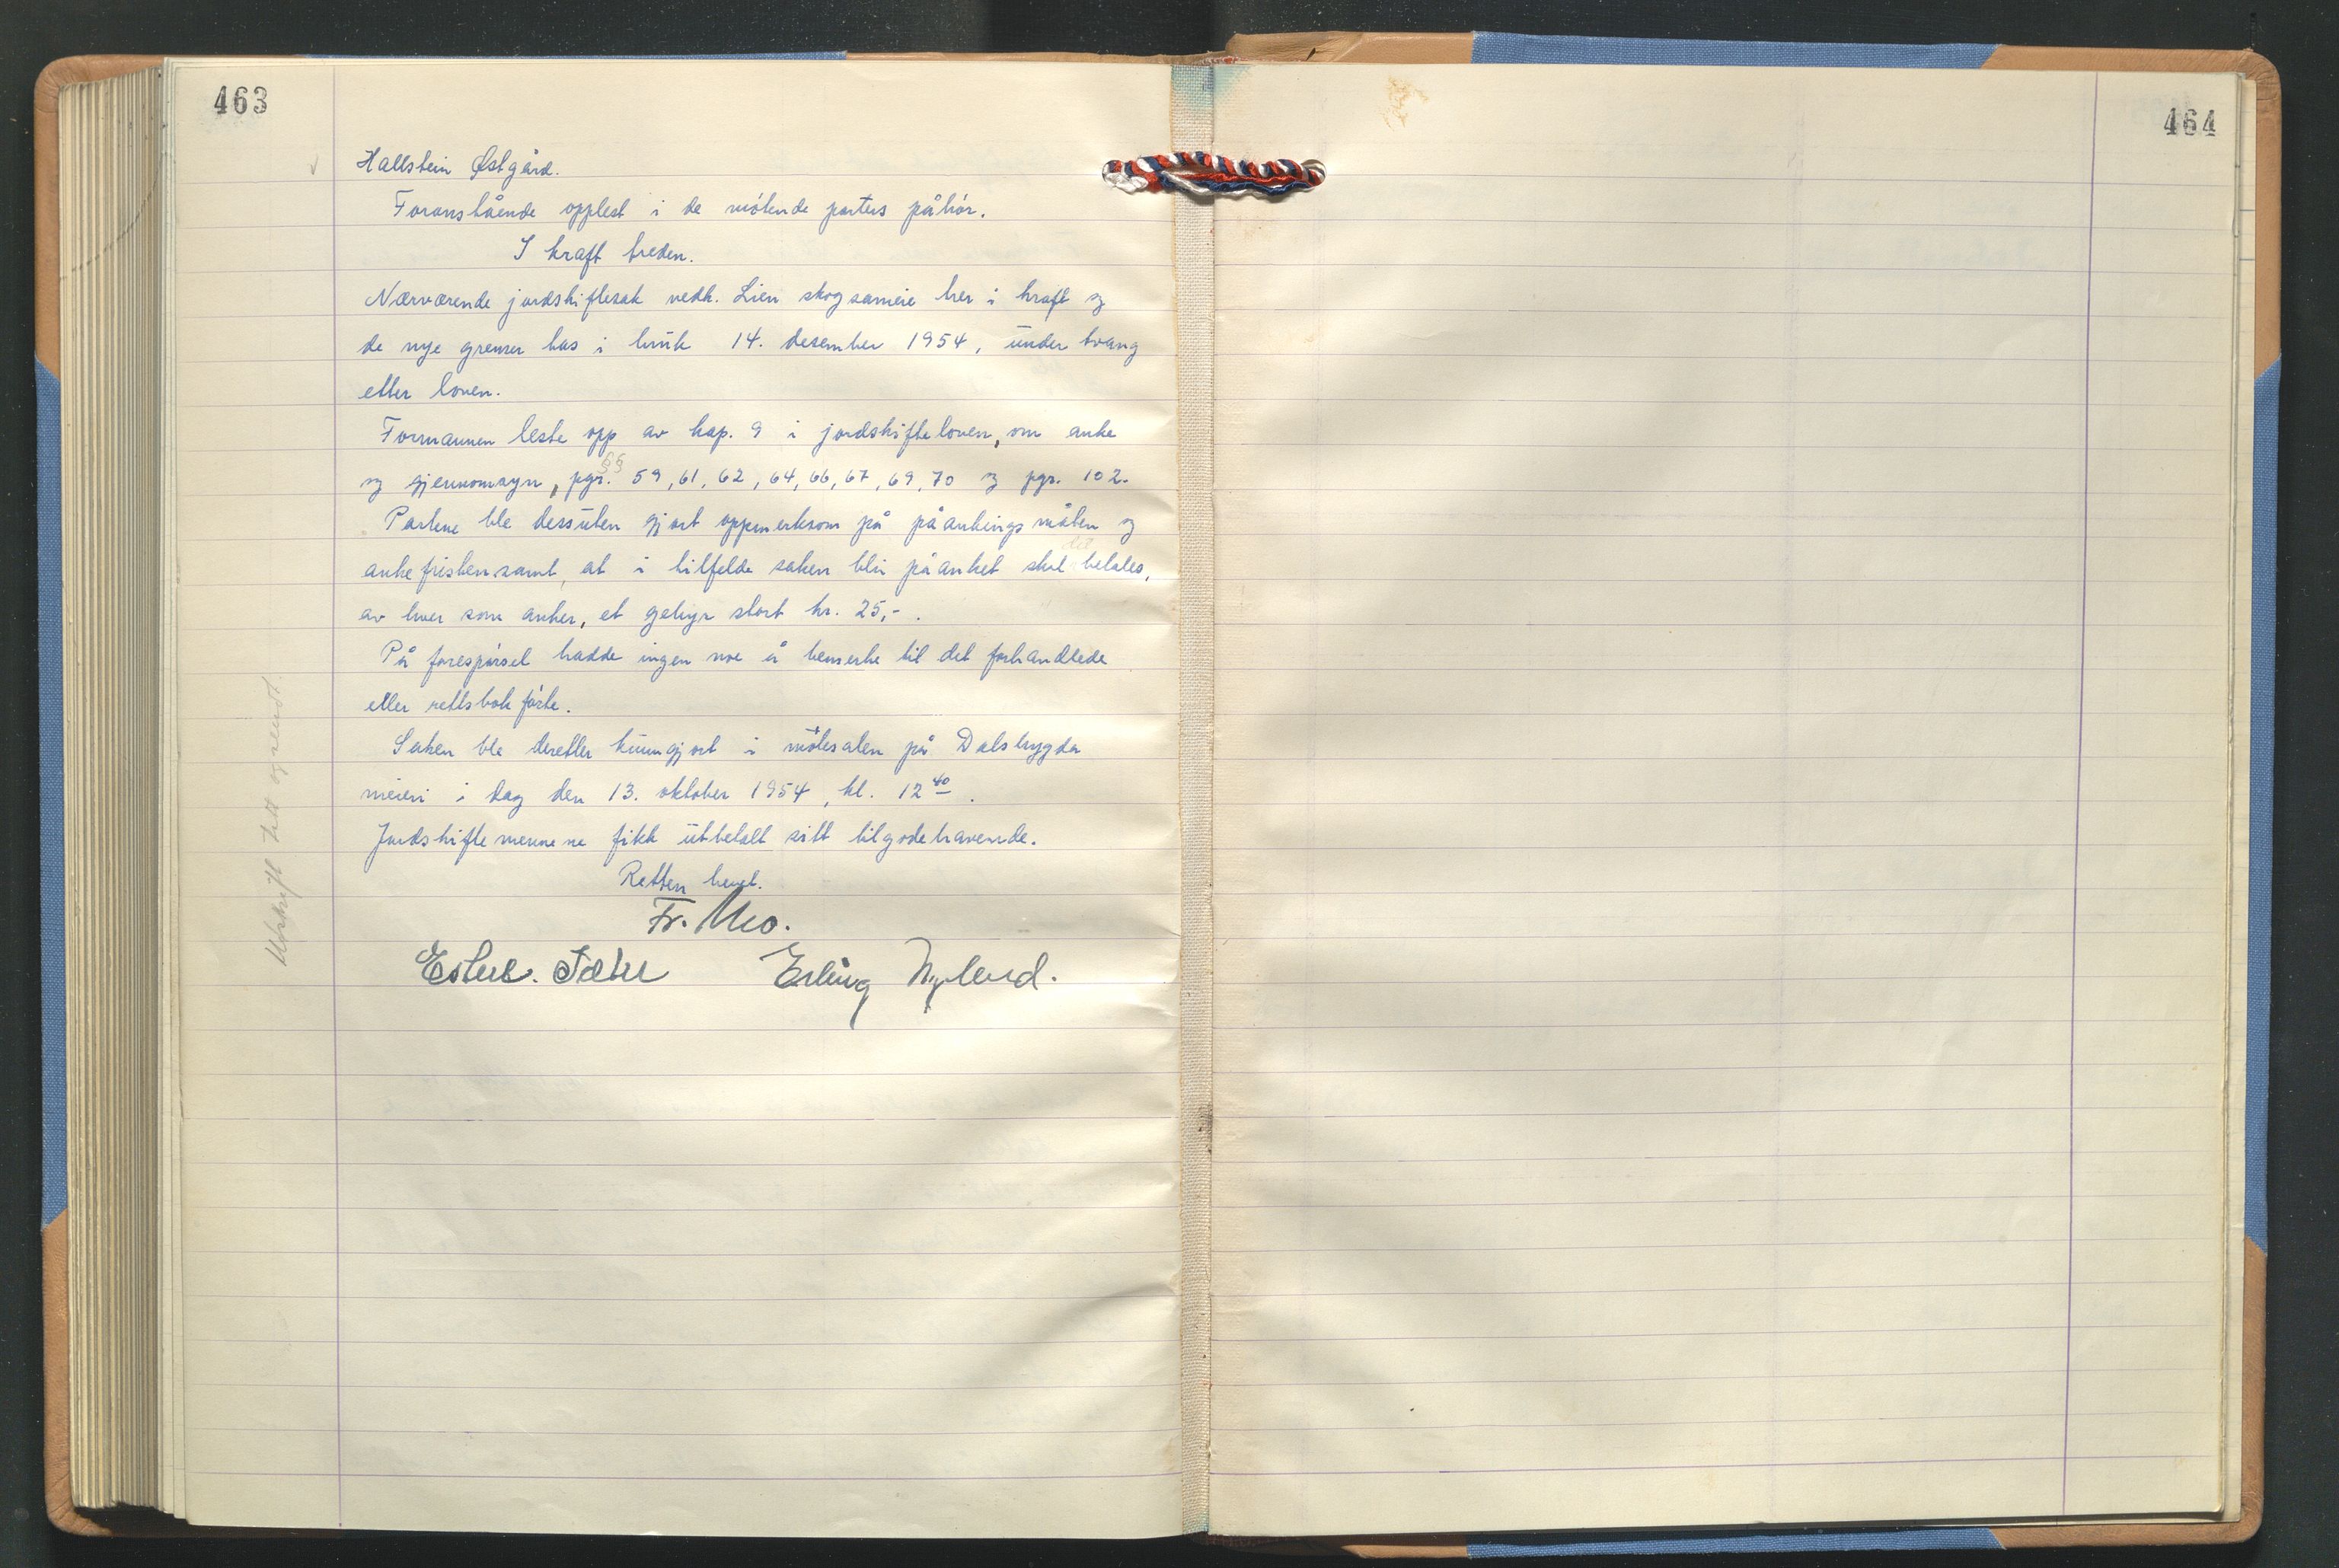 463
Hallstein Østgård.
Foranstående opplest i de møtende parters påhør.
I kraft treden.
Nærværende jordskiftesak vedk. Lien skogsameie trer i kraft og
de nye grenser tas i bruk 14. desember 1954, under tvang
etter loven.
Formannen leste opp av kap. 9 i jordskifteloven, om anke
§§
og gjennomsyn, pgr. 59, 61, 62, 64, 66, 67, 69, 70 og pgr. 102.
Partene ble dessuten gjort oppmerksom på påankingsmåten og
det
ankefristen samt, at i tilfelde saken blir påanket skal betales,
av hver som anker, et gebyr stort kr. 25,-.
På forespørsel hadde ingen noe å bemerke til det forhandlede
eller rettsbokførte.
Saken ble deretter kunngjort i møtesalen på Dalsbygda
meieri i dag den 13. oktober 1954, kl. 12 40.
Jordskiftemennene fikk utbetalt sitt tilgodehavende.
Retten hevet.
Fr. Mo.
Esten Sæter Erling Nyland.
Utskrift tatt og sendt.
464